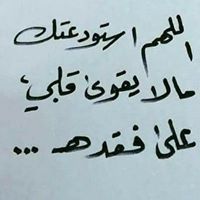 اللهم استودعتك
مالا يقوى قلبي،
على فقده ...